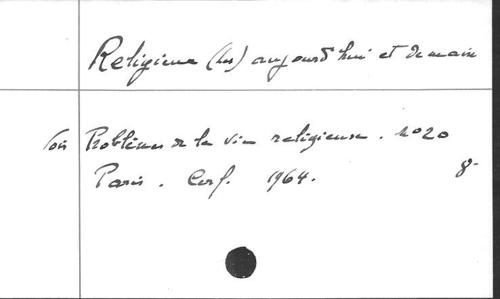 Religieux (les) aujourd'hui et demain
Voir Problèmes de la vie religieuse. No 20
Paris. Cerf. 1964. 8-